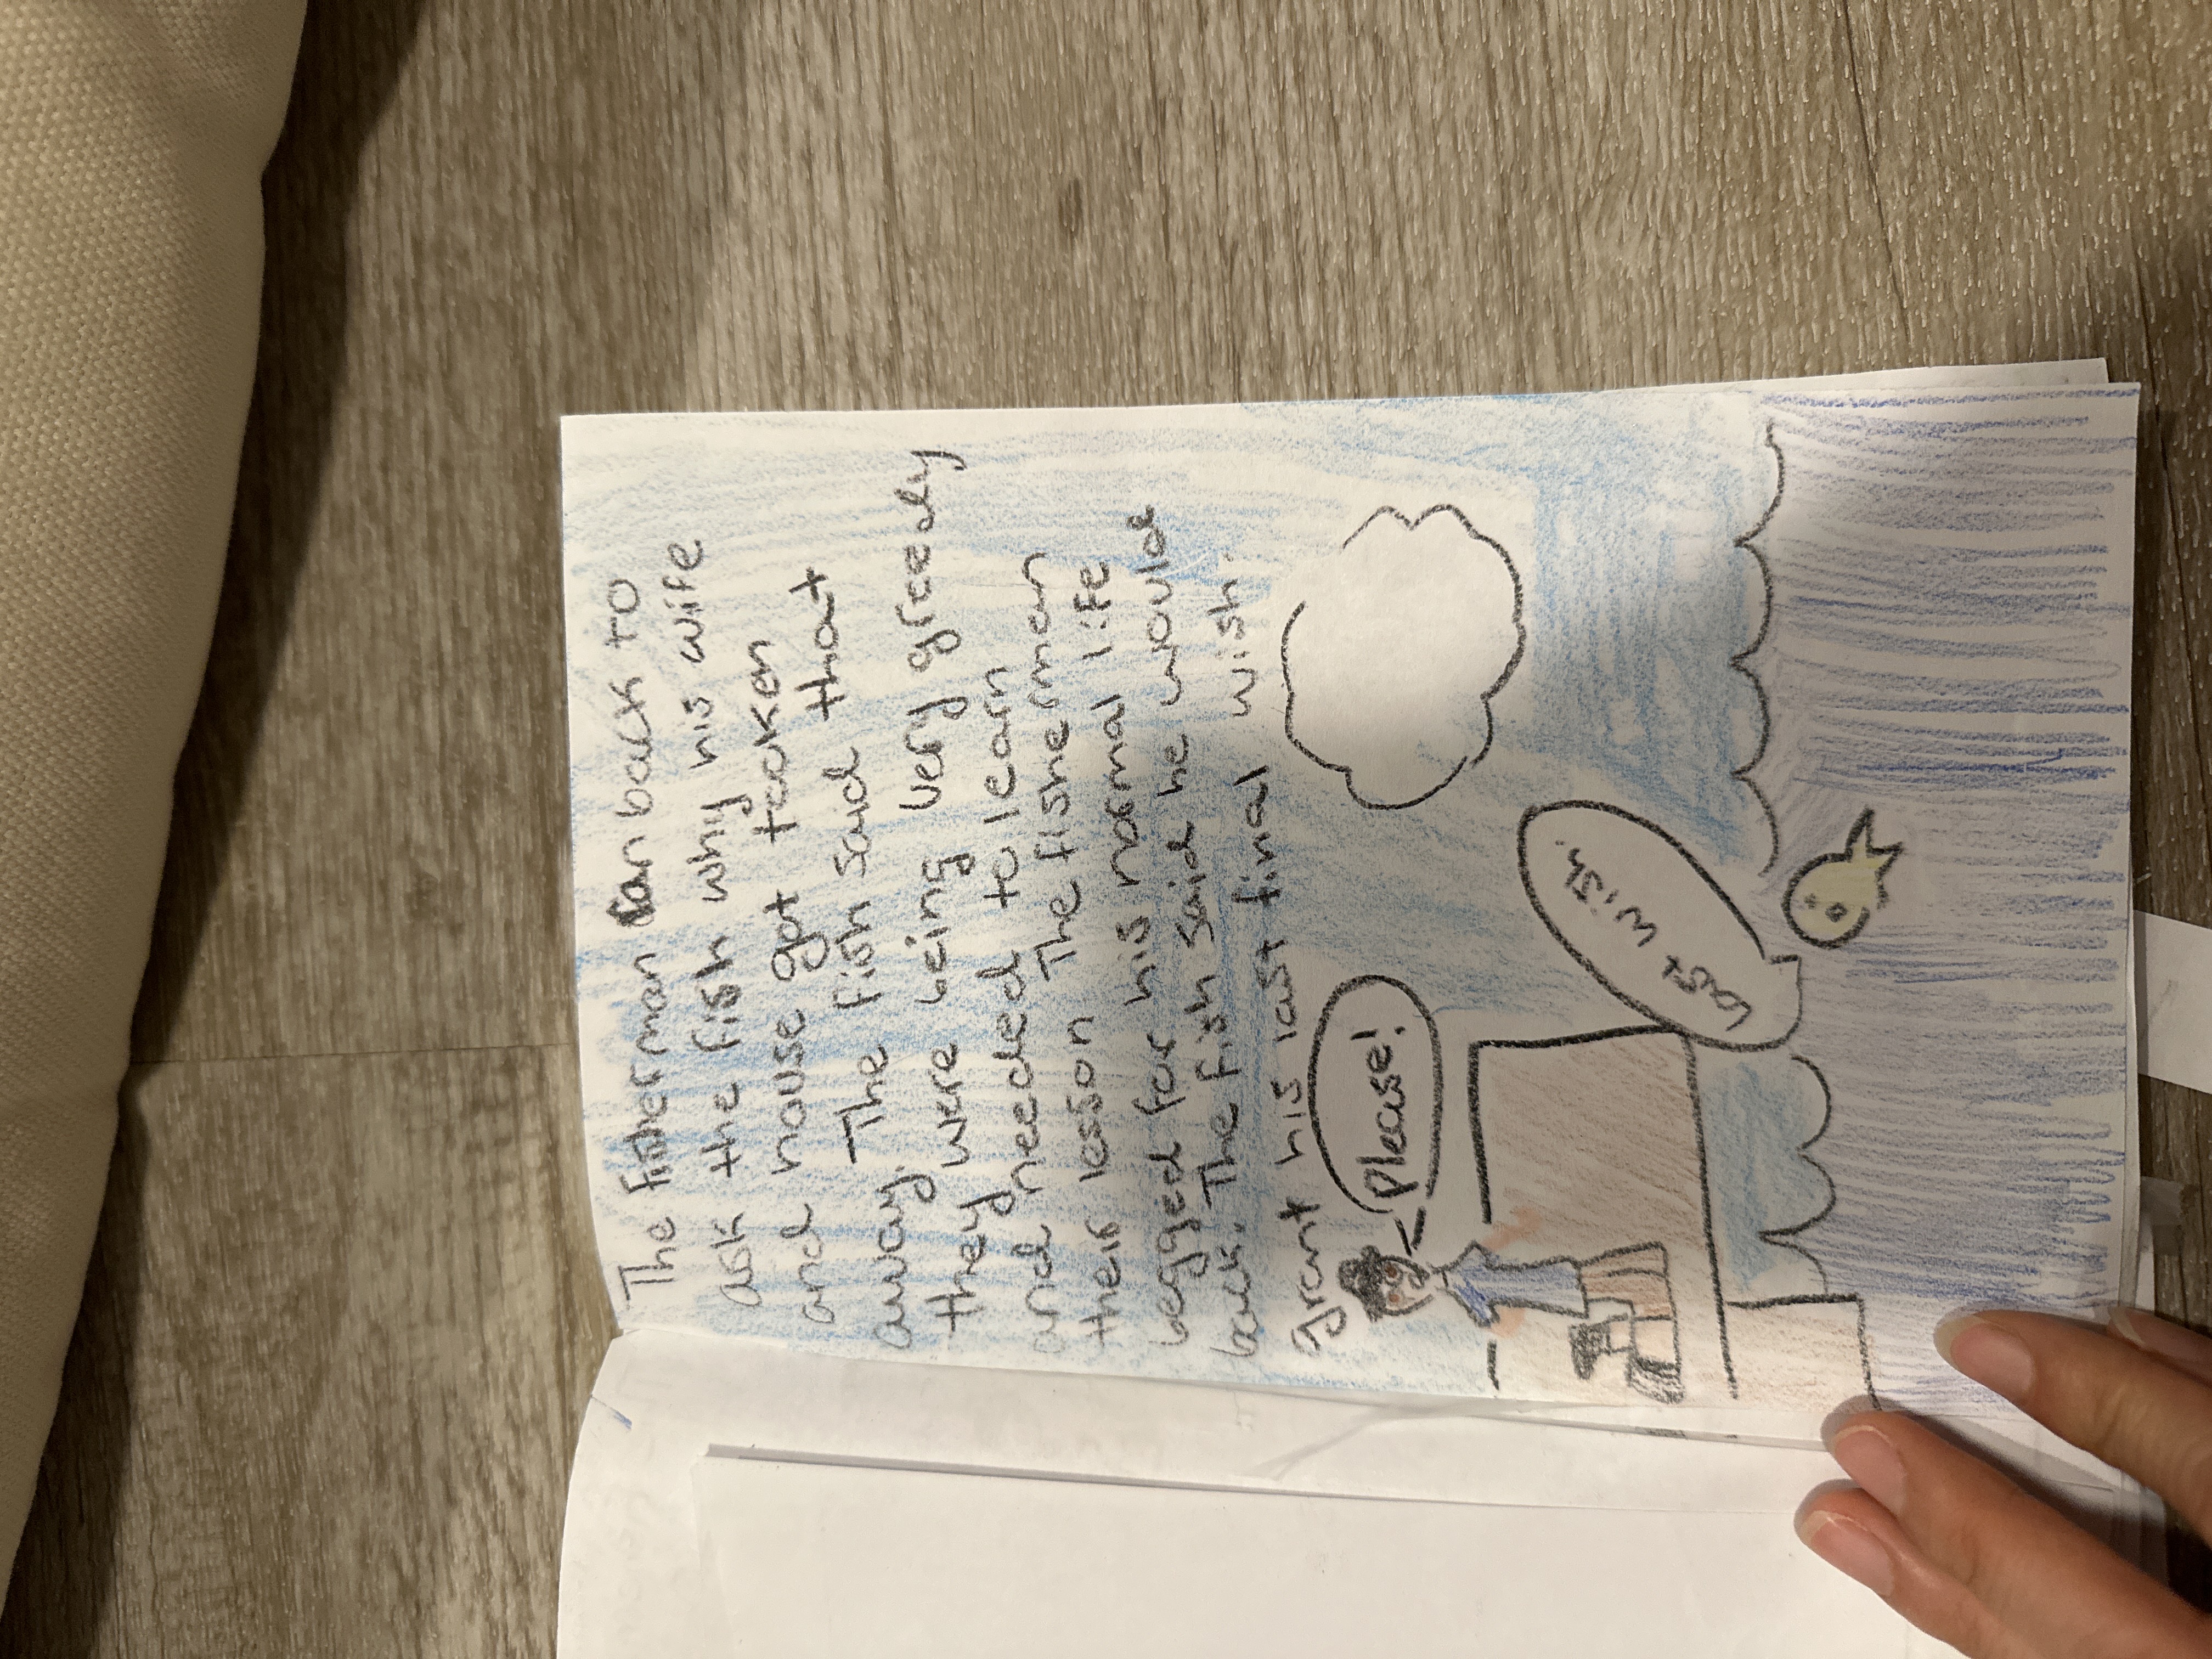 The fisherman ran back to
ask the fish why his wife
and house got tooken
away. The fish said that
they were being very greedy
and needed to learn
their lesson The fisherman
begged for his normal life
back. The fish said he would
grant his last final wish.
Please!
Last wish.